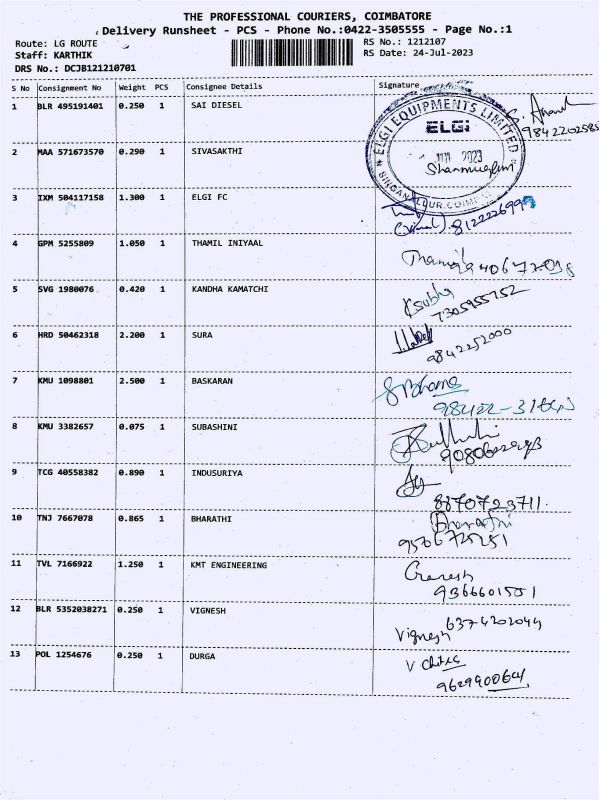 THE PROFESSIONAL COURIERS, COIMBATORE
Delivery Runsheet - PCS - Phone No.:0422-3505555 - Page No.:1
Route: LG ROUTE RS No.: 1212107
Staff: KARTHIK RS Date: 24-Jul-2023
DRS No.: DCJB121210701
S No Consignment No Weight PCS Consignee Details Signature
1 BLR 495191401 0.250 1 SAI DIESEL
S. Anand
9842202585
ELGI EQUIPMENTS LIMITED
ELGI
2023
SINGANALLUR, COIMBATORE
2 MAA 571673570 0.290 1 SIVASAKTHI
3 IXM 504117158 1.300 1 ELGI FC
4 GPM 5255809 1.050 1 THAMIL INIYAAL
5 SVG 1980076 0.420 1 KANDHA KAMATCHI
K Subha
7305955752
6 HRD 50462318 2.200 1 SURA
9842252000
7 KMU 1098801 2.500 1 BASKARAN
8 KMU 3382657 0.075 1 SUBASHINI
9 TCG 40558382 0.890 1 INDUSURIYA
8870723711.
10 TNJ 7667078 0.865 1 BHARATHI
Bharathi
11 TVL 7166922 1.250 1 KMT ENGINEERING
Ganesh
9366601501
12 BLR 5352038271 0.250 1 VIGNESH
6374202044
Vignesh
13 POL 1254676 0.250 1 DURGA
V Chitra
9629900641